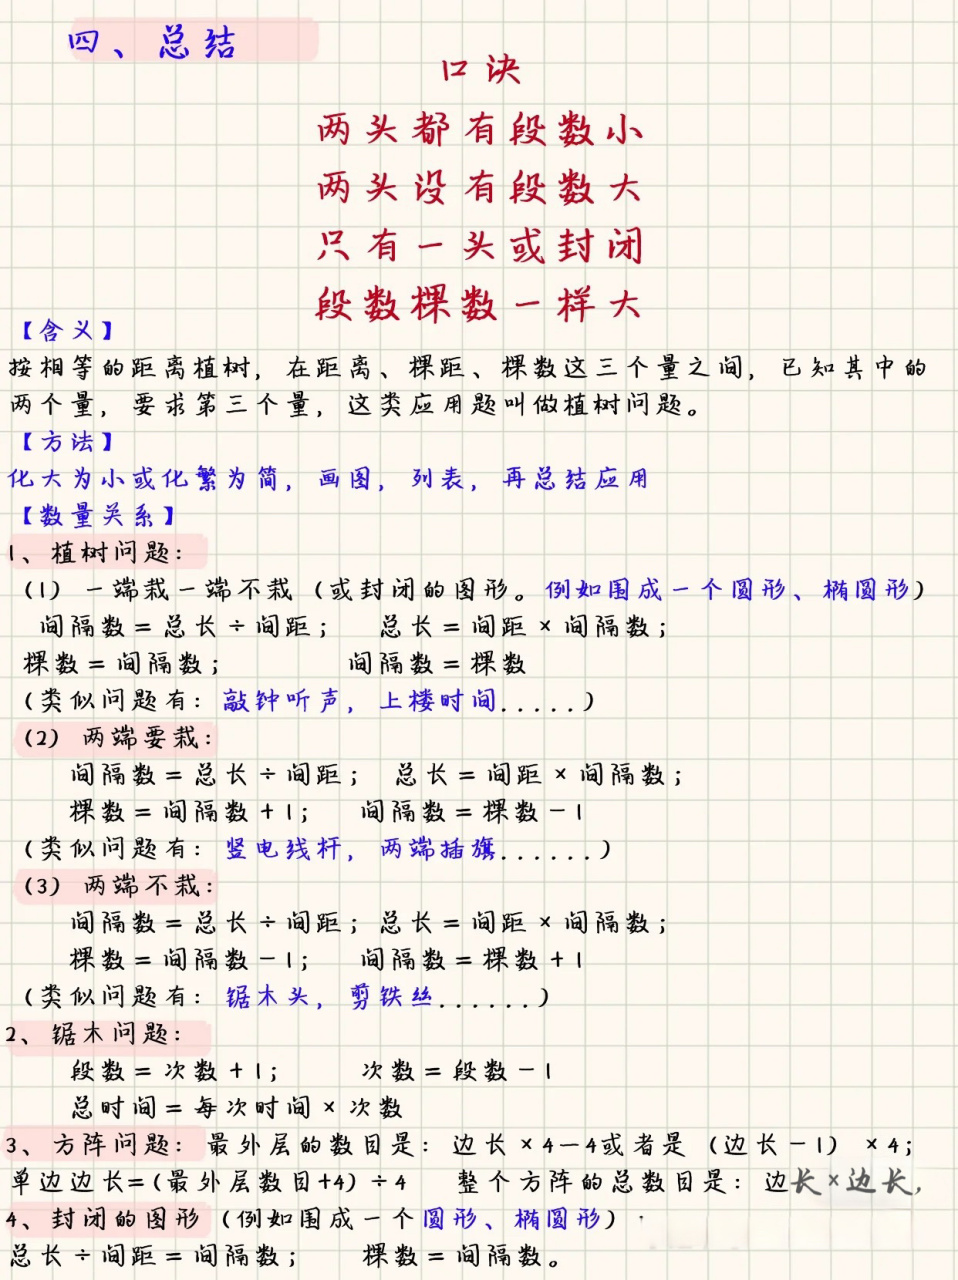 四、总结
口诀
两头都有段数小
两头没有段数大
只有一头或封闭
段数棵数一样大
【含义】
按相等的距离植树，在距离、棵距、棵数这三个量之间，已知其中的
两个量，要求第三个量，这类应用题叫做植树问题。
【方法】
化大为小或化繁为简，画图，列表，再总结应用
【数量关系】
1、植树问题：
（1）一端栽一端不栽（或封闭的图形。例如围成一个圆形、椭圆形）
间隔数=总长÷间距；  总长=间距×间隔数；
棵数=间隔数；  间隔数=棵数
（类似问题有：敲钟听声，上楼时间.....）
（2）两端要栽：
间隔数=总长÷间距；  总长=间距×间隔数；
棵数=间隔数+1；  间隔数=棵数-1
（类似问题有：竖电线杆，两端插旗......）
（3）两端不栽：
间隔数=总长÷间距；总长=间距×间隔数；
棵数=间隔数-1；  间隔数=棵数+1
（类似问题有：锯木头，剪铁丝......）
2、锯木问题：
段数=次数+1；  次数=段数-1
总时间=每次时间×次数
3、方阵问题：最外层的数目是：边长×4—4或者是（边长-1）×4；
单边边长=(最外层数目+4)÷4  整个方阵的总数目是：边长×边长，
4、封闭的图形（例如围成一个圆形、椭圆形）
总长÷间距=间隔数；  棵数=间隔数。